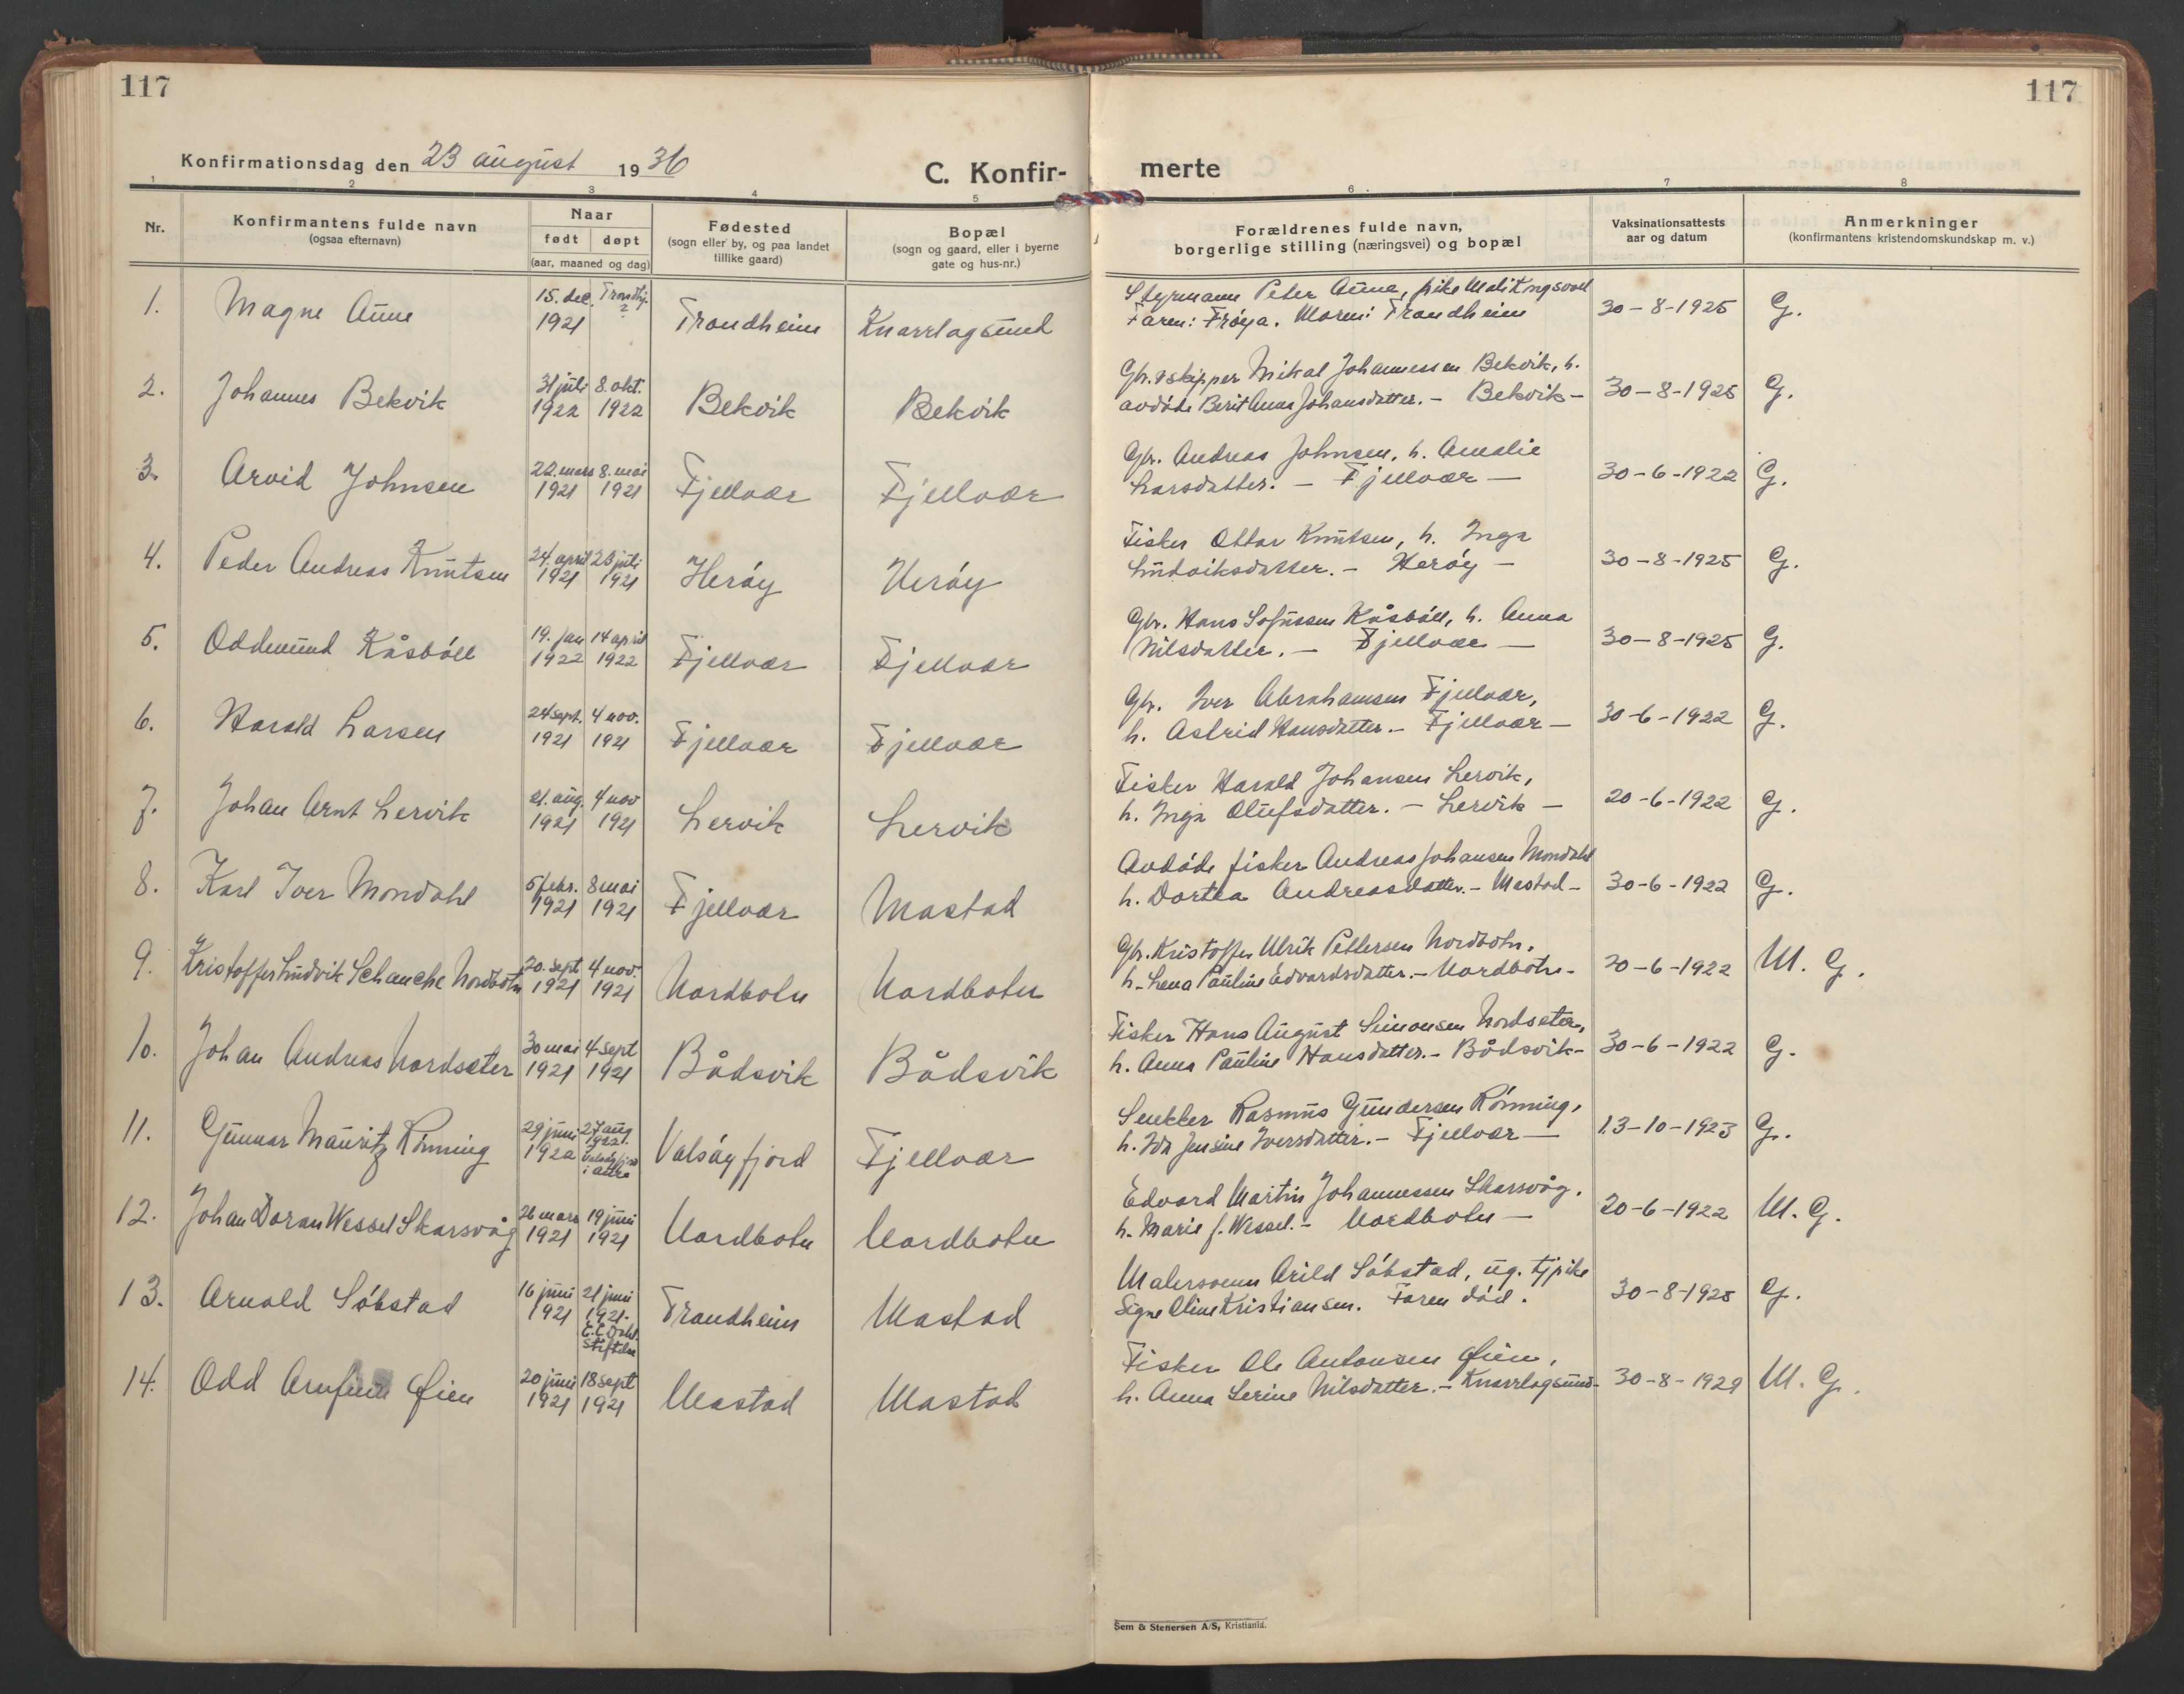 117
117
Konfirmationsdag den 23 august 1936
C. Konfir-
merte
1 2 3 4 5 6 7 8
Nr.
Konfirmantens fulde navn
(ogsaa efternavn)
Naar
født døpt
(aar, maaned og dag)
Fødested
(sogn eller by, og paa landet
tillike gaard)
Bopæl
(sogn og gaard, eller i byerne
gate og hus-nr.)
Forældrenes fulde navn,
borgerlige stilling (næringsvei) og bopæl
Vaksinationsattests
aar og datum
Anmerkninger
(konfirmantens kristendomskundskap m. v.)
1. Magne Aune 15. dec. Trondhj. Trondheim Knarrlagsund Styrmann Peter Aune, pike Mali
1921 ? Faren: Frøya. Moren: Trondheim 30-8-1925 G.
2. Johannes Bekvik 31 juli 8. okt. Bekvik Bekvik Gbr. & skipper Mikal Johannessen Bekvik, h.
1922 1922 avdøde Berit Anna Johansdatter. – Bekvik – 30-8-1925 G.
3. Arvid Johnsen 22. mars 8. mai Fjellvær Fjellvær Gbr. Andreas Johnsen, h. Amalie
1921 1921 Larsdatter. – Fjellvær – 30-6-1922 G.
4. Peder Andreas Knutsen 24. april 23 juli Herøy Herøy Fisker Ottar Knutsen, h. Inga
1921 1921 Ludviksdatter. – Herøy – 30-8-1925 G.
5. Oddmund Kåsbøll 19. jan 14 april Fjellvær Fjellvær Gbr. Hans Sofussen Kåsbøll, h. Anna
1922 1922 Nilsdatter. – Fjellvær – 30-8-1925 G.
6. Harald Larsen 24 sept. 4 nov. Fjellvær Fjellvær Gbr. Iver Abrahamsen Fjellvær,
1921 1921 h. Astrid Hansdatter. – Fjellvær – 30-6-1922 G.
7. Johan Arnt Lervik 21. aug. 4 nov Lervik Lervik Fisker Harald Johansen Lervik,
1921 1921 h. Inga Olufsdatter. – Lervik – 20-6-1922 G.
8. Karl Iver Mondahl 5 febr. 8 mai Fjellvær Mastad Avdøde fisker Andreas Johansen Mondahl
1921 1921 h. Dortea Andreasdatter. – Mastad – 30-6-1922 G.
9. Kristoffer Ludvik Schanche Nordbotn 20. sept 4 nov. Nordbotn Nordbotn Gbr. Kristoffer Ulrik Pettersen Nordbotn,
1921 1921 h. Lena Pauline Edvardsdatter. – Nordbotn – 20-6-1922 M. G.
10. Johan Andreas Nordseter 30 mai 4 sept Bådsvik Bådsvik Fisker Hans August Simonsen Nordseter,
1921 1921 h. Anna Pauline Hansdatter. – Bådsvik – 30-6-1922 G.
11. Gunnar Mauritz Rønning 29 juni 27 aug Valsøyfjord Fjellvær Snekker Rasmus Gundersen Rønning,
1922 1922. Valsøyfjord i Aure h. Ida Jensine Iversdatter. – Fjellvær – 13-10-1923 G.
12. Johan Doran Wessel Skarsvåg 26 mars 19 juni Nordbotn Nordbotn Edvard Martin Johannessen Skarsvåg,
1921 1921 h. Marie f. Wessel. – Nordbotn – 20-6-1922 M. G.
13. Arnold Søbstad 16 juni 21 juni Trondheim Mastad Malersvenn Arild Søbstad, ug. tj.pike
1921 1921. E. C. Dahls Stiftelse Signe Oline Kristiansen. Faren død. 30-8-1925 G.
14. Odd Arnfinn Øien 20 juni 18 sept Mastad Mastad Fisker Ole Antonsen Øien,
1921 1921 h. Anna Serine Nilsdatter. – Knarrlagsund – 30-8-1929 M. G.
Sem & Stenersen A/S, Kristiania.